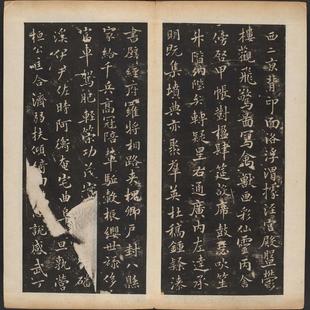 西二京背邙面洛浮渭據涇宮殿盤鬱
樓觀飛驚圖寫禽獸畫彩仙靈丙舍
傍啓甲帳對楹肆筵設席鼓瑟吹笙
升階納陛弁轉疑星右通廣內左達承
明既集墳典亦聚羣英杜稾鍾隸漆
書壁經府羅將相路俠槐卿戶封八縣
家給千兵高冠陪輦驅轂振纓世祿侈
富車駕肥輕策功茂實磻
溪伊尹佐時阿衡奄宅曲阜旦孰營
桓公匡合濟弱扶傾說感武丁